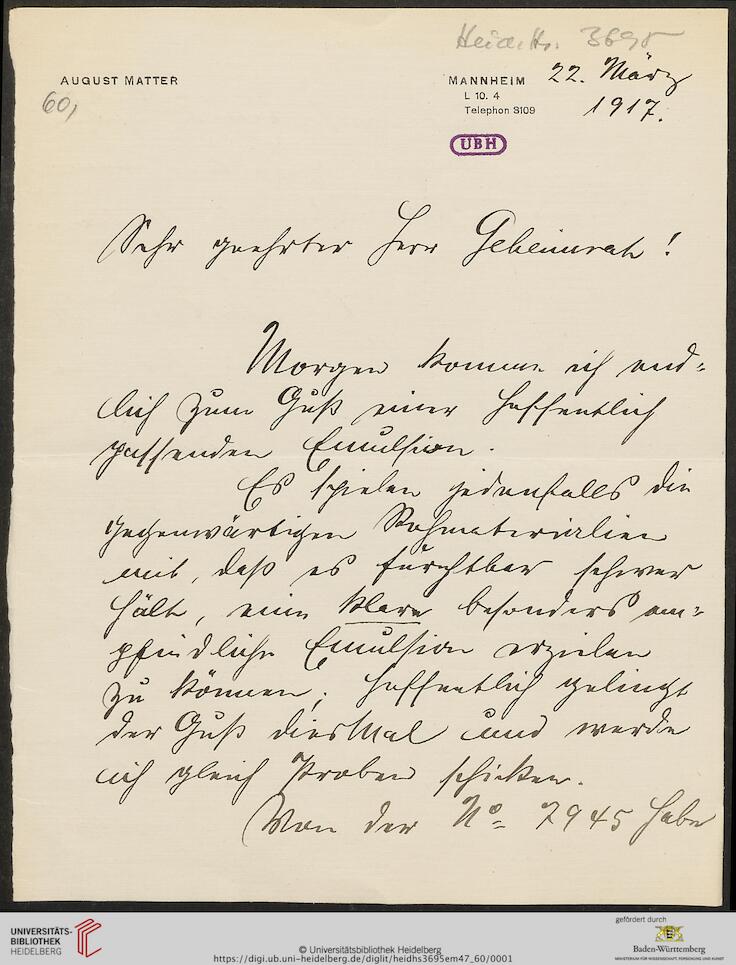 Heid. Hs. 3695
AUGUST MATTER
MANNHEIM
22. März
L 10. 4
1917.
60,
Telephon 3109
UBH
Sehr geehrter Herr Geheimrat!
Morgen komme ich end-
lich zum Guß einer hoffentlich
passenden Emulsion.
Es spielen jedenfalls die
gegenwärtigen Rohmaterialien
mit, daß es furchtbar schwer
hält, eine klare besonders em-
pfindliche Emulsion erzielen
zu können; hoffentlich gelingt
der Guß diesmal und werde
ich gleich Proben schicken.
Von der No 7945 habe
UNIVERSITÄTS-
BIBLIOTHEK
HEIDELBERG
© Universitätsbibliothek Heidelberg
https://digi.ub.uni-heidelberg.de/diglit/heidhs3695em47_60/0001
gefördert durch
Baden-Württemberg
MINISTERIUM FÜR WISSENSCHAFT, FORSCHUNG UND KUNST